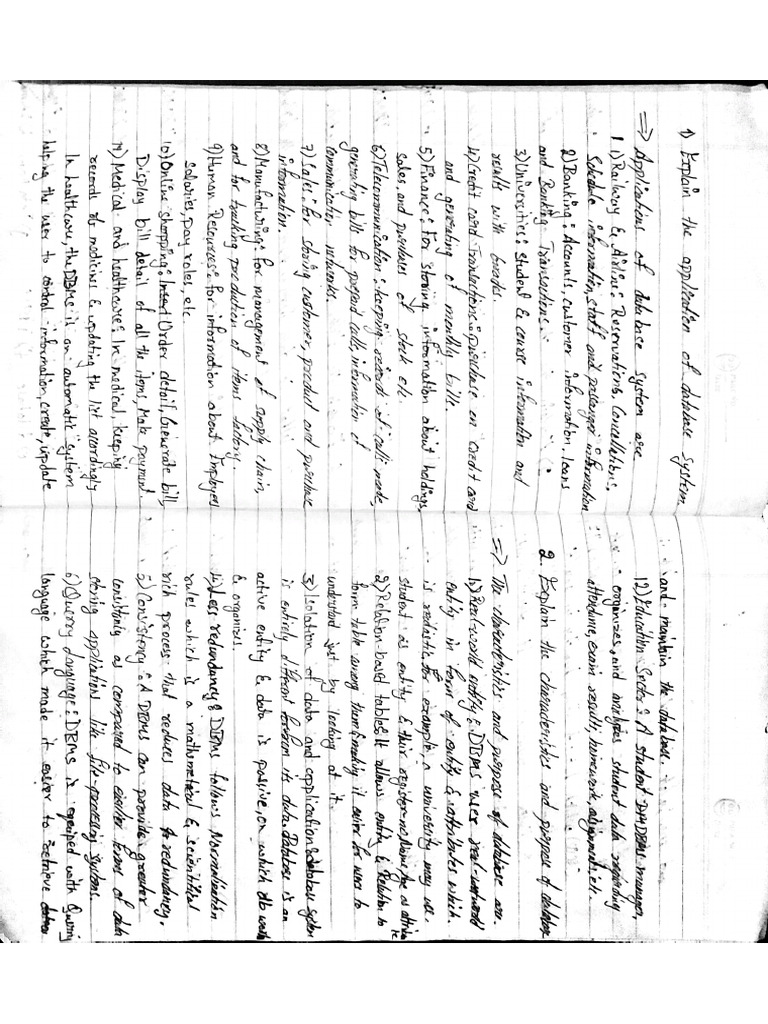 1) Explain the application of database system
⇒ Applications of database system are
1 1) Railway & Airline: Reservations, Cancellations,
Schedule information, staff and passenger information
2) Banking: Accounts, customer information, loans
and Banking Transactions.
3) Universities: Student & course information and
results with Grades.
4) Credit card Transactions: purchase on Credit card
and generating of monthly bills.
5) Finance: For storing information about holdings
sales, and purchases of stock etc.
6) Telecommunication: keeping records of calls made,
generating bills for prepaid calls, information of
communication networks.
7) Sales: For storing customer, product and purchase
information.
8) Manufacturing: for management of supply chain,
and for tracking production of items factory
9) Human Resources: for information about Employees
Salaries, Pay roles, etc
10) Online Shopping: Order detail, Generate bill,
Display bill detail of all the items, Make payment.
11) Medical and healthcare: In medical, keeping
records of medicines & updating the list accordingly
In healthcare, the DBMS is an automatic system
helping the user to control information, create, update
and maintain the database.
12) Education Sector: A student DBMS manages,
organizes, and analyzes student data regarding
attendance, exam results, homework, assignments, etc.
2. Explain the characteristics and purpose of database
⇒ The characteristics and purpose of database are.
1) Real-world entity: DBMS uses real-world
entity in form of entity & attributes which
is realistic for example, a university may use
student as entity & their as attribute
2) Relation-based tables: It allows entity & Relation to
form table among them & making it easier for users to
understand just by looking at it.
3) Isolation of data and application: database system
is entirely different its data. Database is an
active entity & data is passive, on which db works
& organizes.
4) Less redundancy: DBMS follows Normalization
rules which is a mathematical & scientifical
rich process that reduces data redundancy.
5) Consistency: A DBMS can provide greater
consistency as compared to earlier forms of data
storing applications like file-processing systems.
6) Query Language: DBMS is equiped with Query
language which made it easier to retrieve